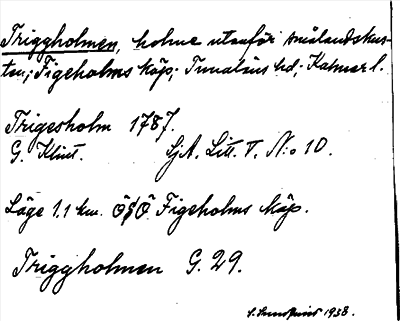 Triggholmen, holme utanför smålandskus-
ten; Figeholms köp; Tunaläns hd; Kalmar l.
Trigesholm 1787.
G. Klint. SjA. Litt. T. N:o 10.
Läge 1.1 km. ÖSÖ Figeholms köp.
Triggholmen G. 29.
S. Sundquist 1938.